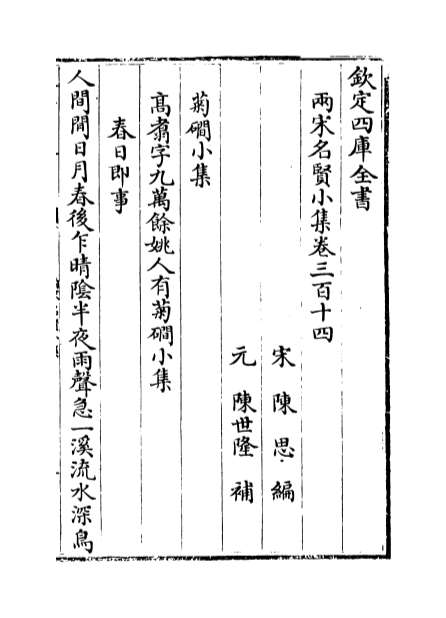 欽定四庫全書
兩宋名賢小集卷三百十四
宋 陳 思 編
元 陳世隆 補
菊磵小集
高翥字九萬餘姚人有菊磵小集
春日即事
人間間日月春後乍晴陰半夜雨聲急一溪流水深鳥